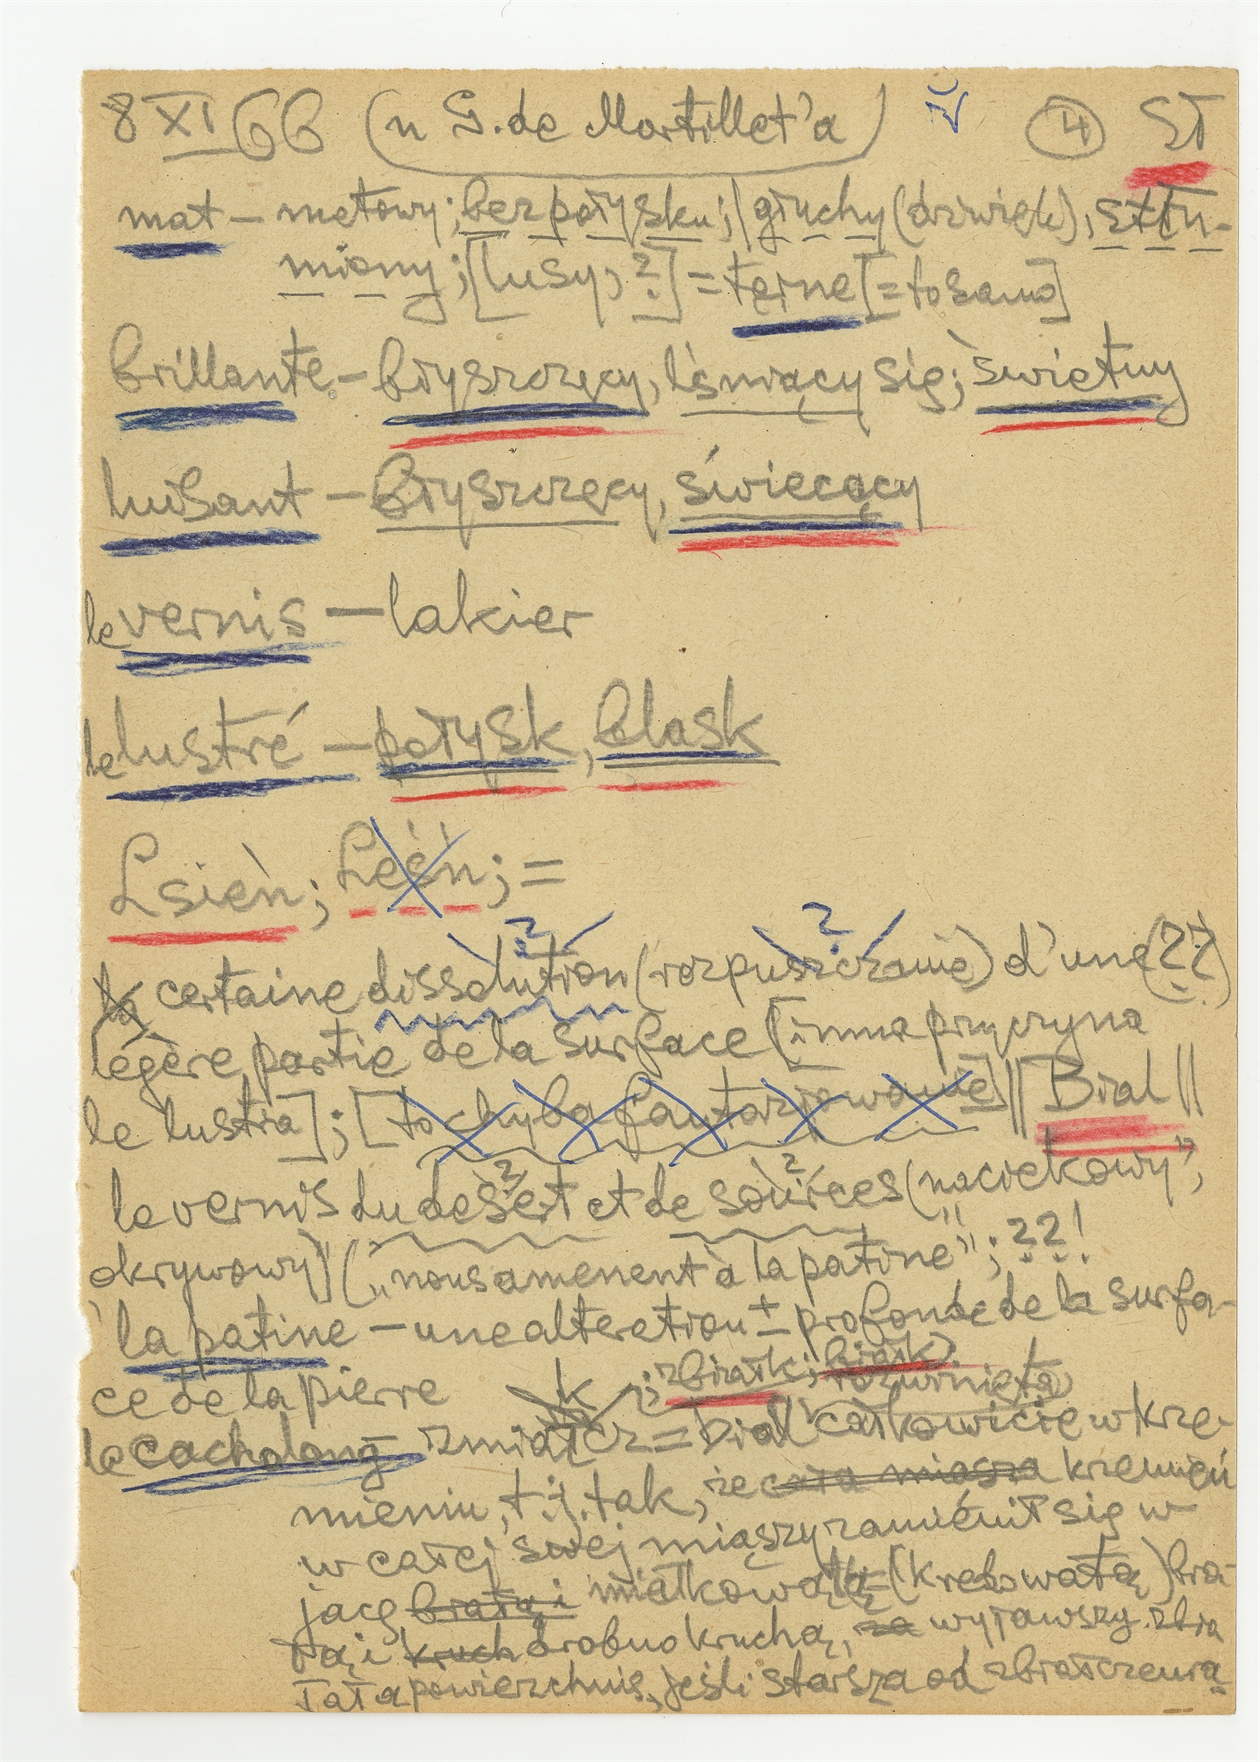 8 XI 66 (u G. de Mortillet'a) ④ SŁ
mat – matowy; bez połysku; głuchy (dźwięk), stłu-
miony; [łusy, ?] = terne [= to samo]
brillante – błyszczący, lśniący się; świetny
luisant – błyszczący, świecący
le vernis – lakier
le lustré – połysk, blask
Lsień; Leśń; =
la certaine dissolution (rozpuszczanie) d'une (??)
légère partie de la surface [inna przyczyna
le lustra]; [to chyba fantazjowanie] || Bial ||
le vernis du désert et de sources („naciekowy",
okrywowy) („nous amènent à la patine"; ??!
la patine – une alteretion ± profonde de la surfa-
ce de la pierre ; zbiałk; białk)
rozwinięta)
le cacholong – zmiałcz = biał całkowicie w krze-
mieniu, t.j. tak, że cała miąsza krzemień
w całej swej miąszy zamienił się w
jącą białą i miałkowatą (kredowatą) bia-
łą i kruch drobno kruchą, za wyjąwszy zbia
łałą powierzchnię, jeśli starsza od zbiałczenia